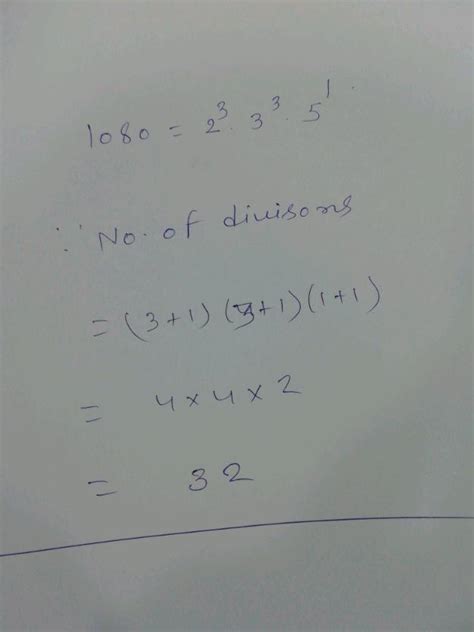 1080 = 2³. 3³. 5¹.
∵ No. of divisons
= (3+1) (3+1) (1+1)
= 4 × 4 × 2
= 32